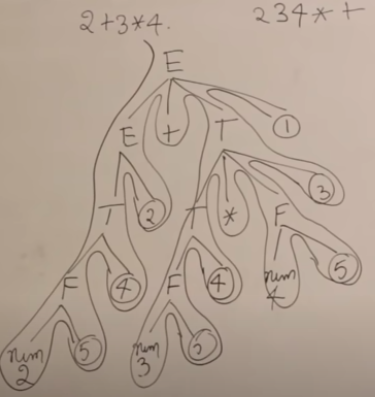 2+3*4.
234*+
E
E + T ①
T ② T * F ③
F ④ F ④ num 4 ⑤
num 2 ⑤ num 3 ⑤